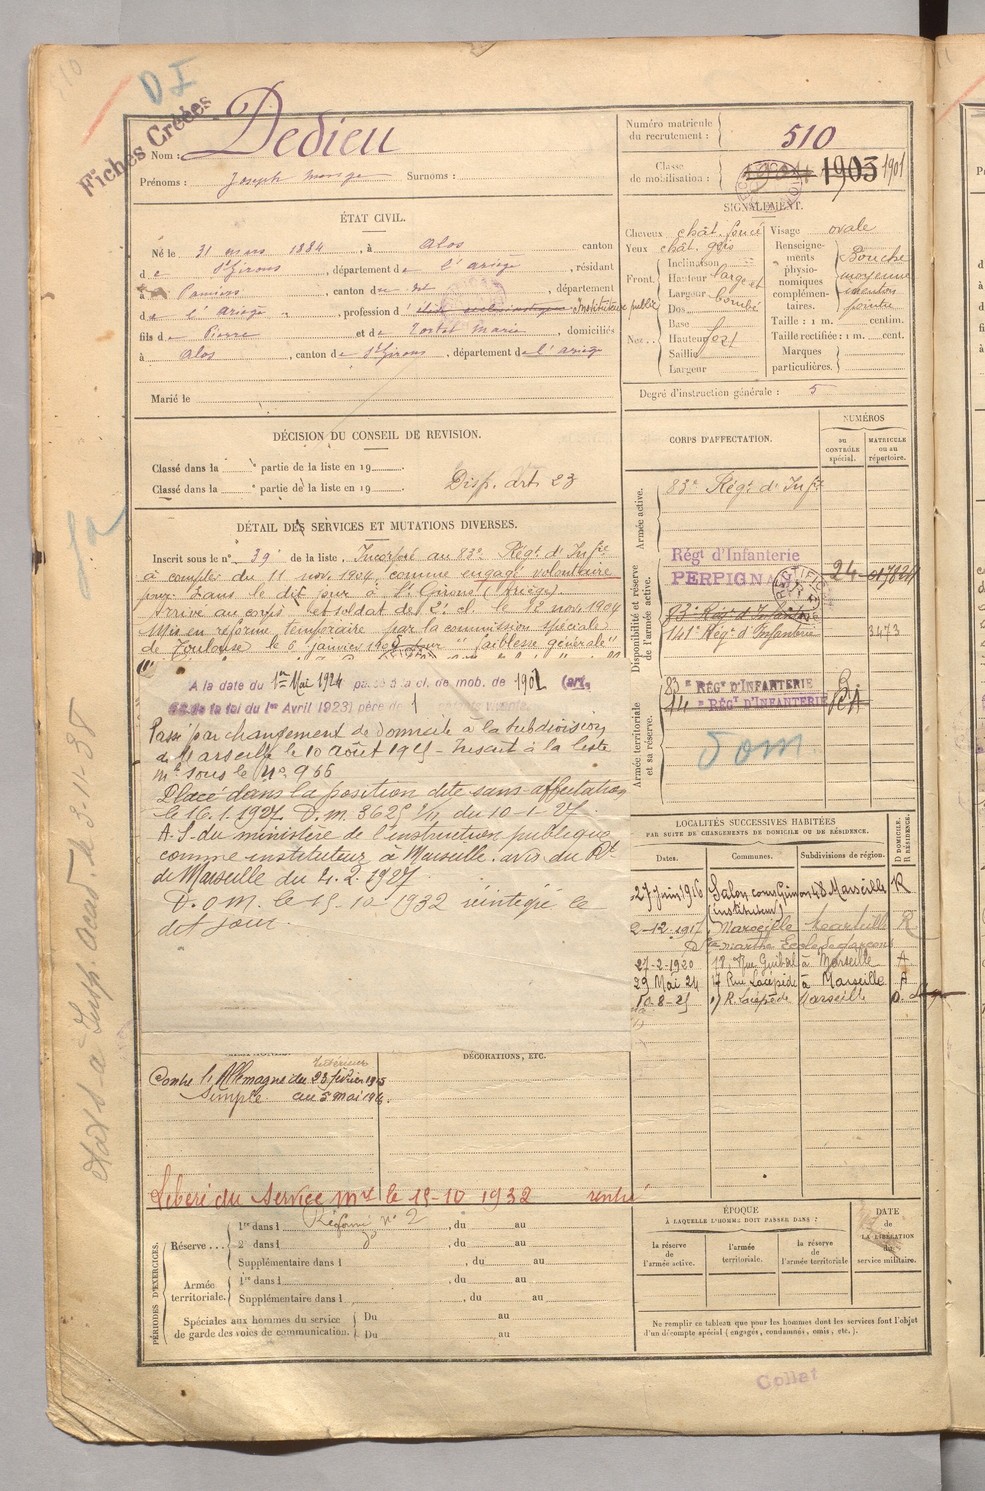 D I
Fiches Créées
Nom : Dedieu
Prénoms : Joseph Surnoms :
Numéro matricule
du recrutement : 510
Classe
de mobilisation : 1903 1901
ÉTAT CIVIL.
Né le 31 mars 1884, à Alos canton
de St Girons, département de l'ariège, résidant
à Pamiers, canton du dit, département
de l'ariège, profession d' Instituteur public
fils de Pierre et de Tortet Marie, domiciliés
à Alos, canton de St Girons, département de l'ariège
Marié le
SIGNALEMENT.
Cheveux chât. foncé
Yeux chât. gris
Front. Inclinaison
Hauteur large et
Largeur bombé
Nez Dos
Base
Hauteur fort
Saillie
Largeur
Visage ovale
Renseignements physionomiques complémentaires. Bouche moyenne menton pointu
Taille : 1 m. centim.
Taille rectifiée : 1 m. cent.
Marques
particulières.
Degré d'instruction générale : 5
DÉCISION DU CONSEIL DE REVISION.
Classé dans la e partie de la liste en 19
Classé dans la e partie de la liste en 19 Disp. Art. 23
DÉTAIL DES SERVICES ET MUTATIONS DIVERSES.
Inscrit sous le n° 39 de la liste. Incorporé au 83e Régt d'Infie
à compter du 11 nov. 1904, comme engagé volontaire
pour 3 ans le dit jour à St Girons (Ariège).
Arrivé au corps et soldat de 2e cl. le 12 nov. 1904
Mis en réforme temporaire par la commission spéciale
de Toulouse le 6 janvier pour "faiblesse générale"
A la date du 1er Mai 1924 passé à la cl. de mob. de 1901 (art.
de la loi du 1er Avril 1923) père de 1
Passé par changement de domicile à la subdivision
de Marseille le 10 août 1925 - Inscrit à la liste
mle sous le N° 966
Placé dans la position dite sans affectation
le 16.1.1927 D.M. 3625 du 10-1-27
A.S. du ministère de l'instruction publique
comme instituteur à Marseille. avis du Rt
de Marseille du 4.2.1927
D.O.M. le 15-10-1932 réintégré le
dit jour
CORPS D'AFFECTATION.
NUMÉROS
AU CONTRÔLE spécial.
MATRICULE ou au répertoire.
Armée active.
83e Régt d'Infie
Disponibilité et réserve de l'armée active.
Régt d'Infanterie
PERPIGNAN 24
RECTIFIÉ
83e Régt d'Infanterie
141e Régt d'Infanterie 3473
Armée territoriale et sa réserve.
83e RÉGT D'INFANTERIE
14e RÉGT D'INFANTERIE
Dom
LOCALITÉS SUCCESSIVES HABITÉES
PAR SUITE DE CHANGEMENTS DE DOMICILE OU DE RÉSIDENCE.
Dates. Communes. Subdivisions de région. D DOMICILE. R RÉSIDENCE.
27 Juin 1916 Salon cours Gimon 48 Marseille R
(instituteur)
2-12-1917 Marseille Marseille R
Ste marthe Ecole de garçons
27-2-1920 18, Rue Guibal à Marseille A
29 Mai 24 17 Rue Lacépède à Marseille A
10-8-25 17 R. Lacépède Marseille D.
DÉCORATIONS, ETC.
Intérieur
Contre l'Allemagne du 23 février 1915
Simple au 5 mai 1916.
Libéré du Service Mre le 15-10 1932
PÉRIODES D'EXERCICES.
Réserve Réformé n° 2
1re dans l , du au
2e dans l , du au
Supplémentaire dans l , du au
Armée territoriale.
1re dans l , du au
Supplémentaire dans l , du au
Spéciales aux hommes du service
de garde des voies de communication. Du au
Du au
ÉPOQUE
À LAQUELLE L'HOMME DOIT PASSER DANS :
la réserve de l'armée active.
l'armée territoriale.
la réserve de l'armée territoriale
DATE de LA LIBÉRATION du service militaire.
Ne remplir ce tableau que pour les hommes dont les services font l'objet
d'un décompte spécial (engagés, condamnés, omis, etc.).
Collat